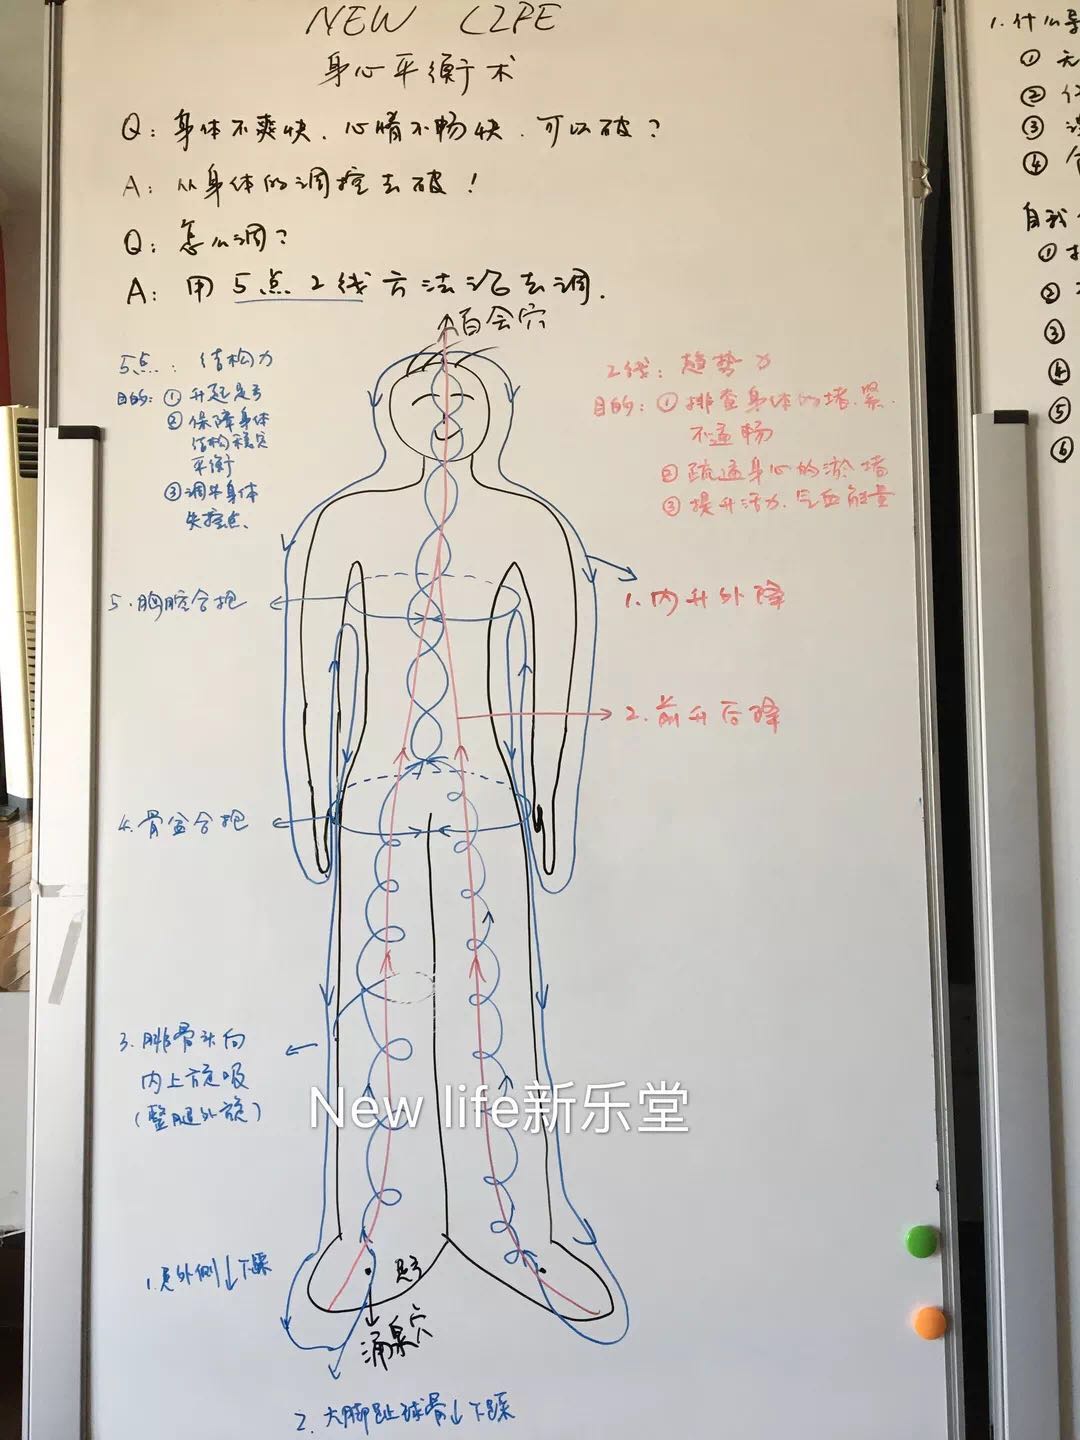 NEW LIFE
身心平衡术
Q: 身体不爽快、心情不畅快、可以破？
A: 从身体的调控去破！
Q: 怎么调？
A: 用 5点2线方法论去调.
百会穴
5点: 结构力
目的: ① 升起足弓
② 保障身体
结构稳定
平衡
③ 调年身体
失控点、
2线: 趋势力
目的: ① 排查身体的堵.紧.
不通畅
② 疏通身心的淤堵
③ 提升活力、气血能量
5.胸腔合抱
1.内升外降
2.前升后降
4.骨盆合抱
3.腓骨头向
内上旋吸
(整腿外旋)
New life新乐堂
1.足外侧↓下踩
足弓
涌泉穴
2.大脚趾球骨↓下踩
1.什么导
① 无
②
③
④
自我
①
②
③
④
⑤
⑥